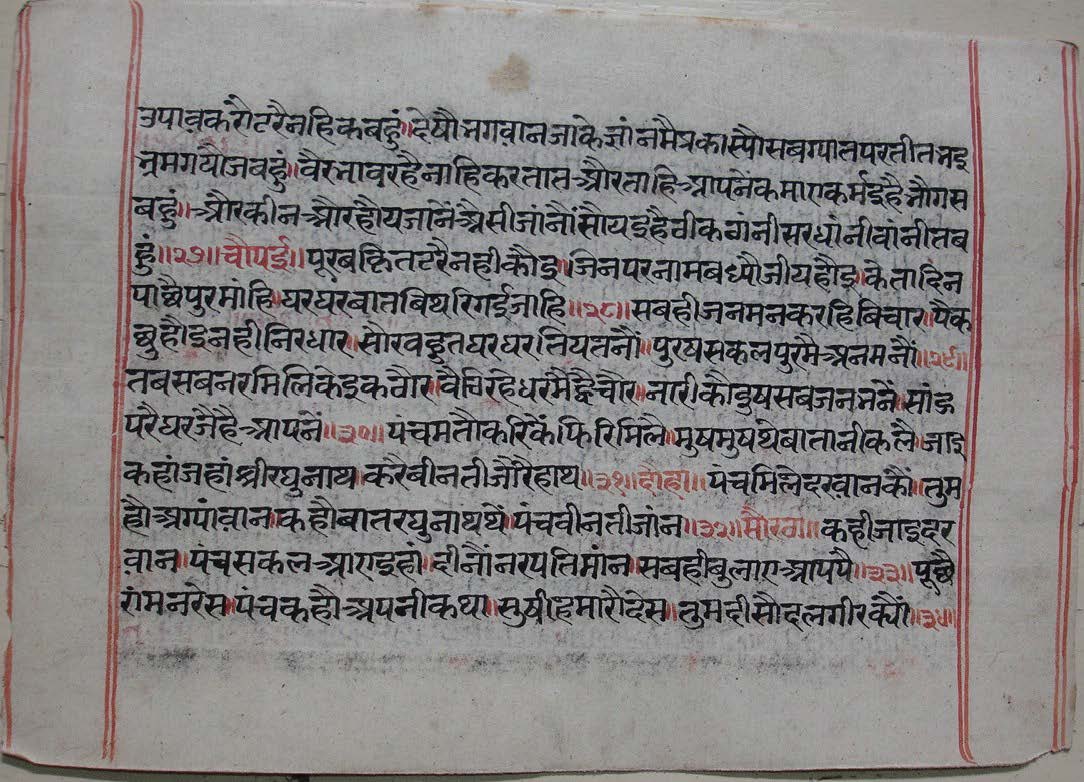 उपावकरौटरैनहिकबहुं॥देषौभगवानजाकेज्ञांनमैप्रकास्यौसबग्यातपरतीतभइ
भ्रमगयौजबहुं॥वैरभावरहैनाहिकरतात॥औरताहिआपनैंकमाएकर्मइहैभौगस
बहुं॥औरकीनऔरहौयजानेंअैसीजांनौंसौयइहैवीकवांनीसरधांनीवांनीतब
हुं॥२७॥चौपई॥पूरबक्रिततटरैनहीकौइ॥जिनपरनामबध्यौजीयहौइ॥केतादिन
पाछैपुरमांहि॥घरघरबातबिथरिगईजाहि॥२८॥सबहीजनमनकरहिबिचार॥पैक
छुहौइनहीनिरधार॥सौरवहुतघरघरतियतनौं॥पुरषसकलपुरमैअनमनौं॥२९॥
तबसबनरमिलिकेइकठौर॥वैठिरहेधरमैंद्वैचौर॥नारीकौदुषसबजनभनें॥सांझ
परैघरजैहैआपनें॥३०॥पंचमतौकरिकैंफिरिमिलै॥मुषमुषथेबातानीकलै॥जाइ
कहांजहांश्रीरघुनाथ॥करैबीनतीजौरैहाथ॥३१॥दौहा॥पंचमिलेदरवानकौं॥तुम
हौअग्यांवान॥कहौबातरघुनाथथैं॥पंचवीनतीजांन॥३२॥सौरठा॥कहीजाइदर
वान॥पंचसकलआएइहां॥दीनौंनरपतिमांन॥सबहीबुलाएआपपै॥३३॥पूछै
रांमनरेस॥पंचकहौअपनीकथा॥सुषीहमारौदेस॥तुमदीसौदलगीरक्यौं॥३४॥